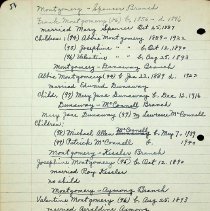 54
Montgomery - Spencer Branch
Frank Montgomery (96) b. 1856 - d. 1896
married Mary Spencer Oct 25, 1887
Children: (96) Abbie Montgomery, 1889 - 1922
(96) Josephine " b. Oct 12, 1890
(96) Valentine " b. Aug 25, 1893
Montgomery - Dunaway Branch
Abbie Montgomery (96) b. Jan 22, 1889 d. 1922
married Edward Dunaway
Child: (97) Mary Jane Dunaway b. Dec 12, 1916
Dunaway - McConnell Branch
Mary Jane Dunaway (97) m. Lawrence McConnell
Children:
(98) Michael Allen McConnell b. May 7, 1939
(99) Patrick McConnell b. 1940
Montgomery - Keeler Branch
Josephine Montgomery (96) b. Oct 12, 1890
married Roy Keeler
no childs
Montgomery - Aymong Branch
Valentine Montgomery (96) b. Aug 25, 1893
married Geraldine Aymong